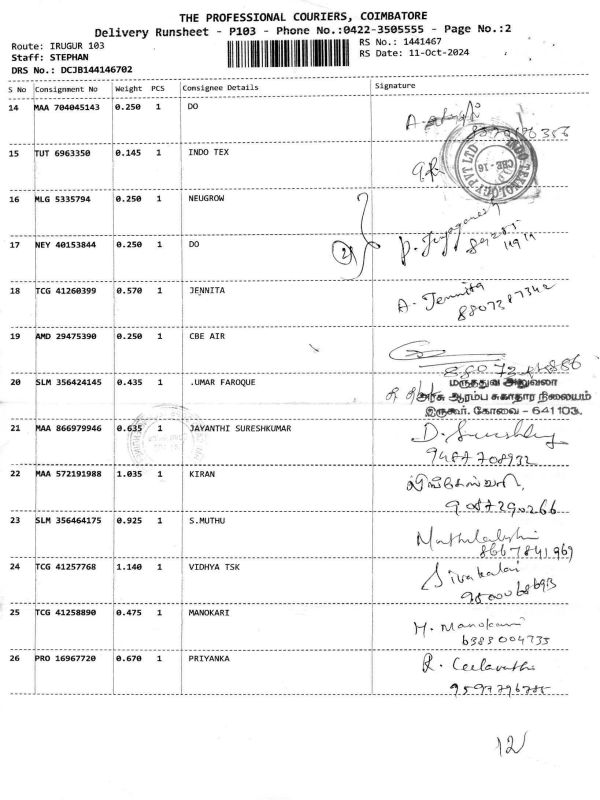 THE PROFESSIONAL COURIERS, COIMBATORE
Delivery Runsheet - P103 - Phone No.:0422-3505555 - Page No.:2
Route: IRUGUR 103
RS No.: 1441467
Staff: STEPHAN
RS Date: 11-Oct-2024
DRS No.: DCJB144146702
S No Consignment No Weight PCS Consignee Details Signature
14 MAA 704045143 0.250 1 DO
15 TUT 6963350 0.145 1 INDO TEX
INDO TEKNOLOGY PVT LTD
CBE - 16
16 MLG 5335794 0.250 1 NEUGROW
17 NEY 40153844 0.250 1 DO
18 TCG 41260399 0.570 1 JENNITA A. Jennita
8807387342
19 AMD 29475390 0.250 1 CBE AIR
20 SLM 356424145 0.435 1 .UMAR FAROQUE
மருத்துவ அலுவலர்
அரசு ஆரம்ப சுகாதார நிலையம்
இருகூர். கோவை - 641103.
21 MAA 866979946 0.635 1 JAYANTHI SURESHKUMAR
9487708932
22 MAA 572191988 1.035 1 KIRAN
9087290266
23 SLM 356464175 0.925 1 S.MUTHU Muthulakshmi
8667841969
24 TCG 41257768 1.140 1 VIDHYA TSK Sivakalai
25 TCG 41258890 0.475 1 MANOKARI M. Manokari
6383004735
26 PRO 16967720 0.670 1 PRIYANKA R.
9597796785
12